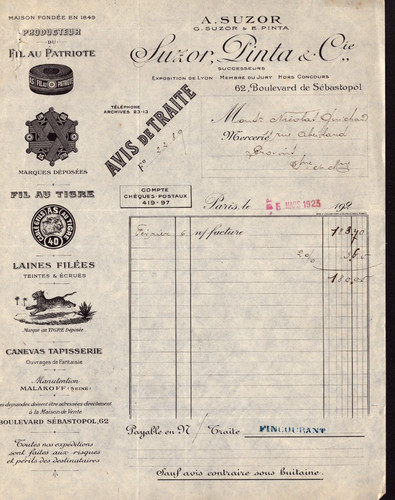 MAISON FONDÉE EN 1849
PRODUCTEUR
DU
FIL AU PATRIOTE
FIL AU PATRIOTE
MARQUES DÉPOSÉES
FIL AU TIGRE
40
LAINES FILÉES
TEINTES & ÉCRUES
Marque au TIGRE Déposée
CANEVAS TAPISSERIE
Ouvrages de Fantaisie
Manutention
MALAKOFF (SEINE)
Les demandes doivent être adressées directement
à la Maison de Vente
BOULEVARD SÉBASTOPOL, 62
Toutes nos expéditions
sont faites aux risques
et périls des destinataires
A. SUZOR
G. SUZOR & E. PINTA
Suzor, Pinta & Cie
SUCCESSEURS
EXPOSITION DE LYON MEMBRE DU JURY HORS CONCOURS
62, Boulevard de Sébastopol
TÉLÉPHONE
ARCHIVES 23-13
AVIS DE TRAITE
Fo
Mercerie
COMPTE
CHÈQUES-POSTAUX
419-97
Paris, le 5 MARS 1923 192
Février 6 n/ facture 183,70
2% 3,65
180,05
Payable en N/ Traite FIN COURANT
Sauf avis contraire sous huitaine.